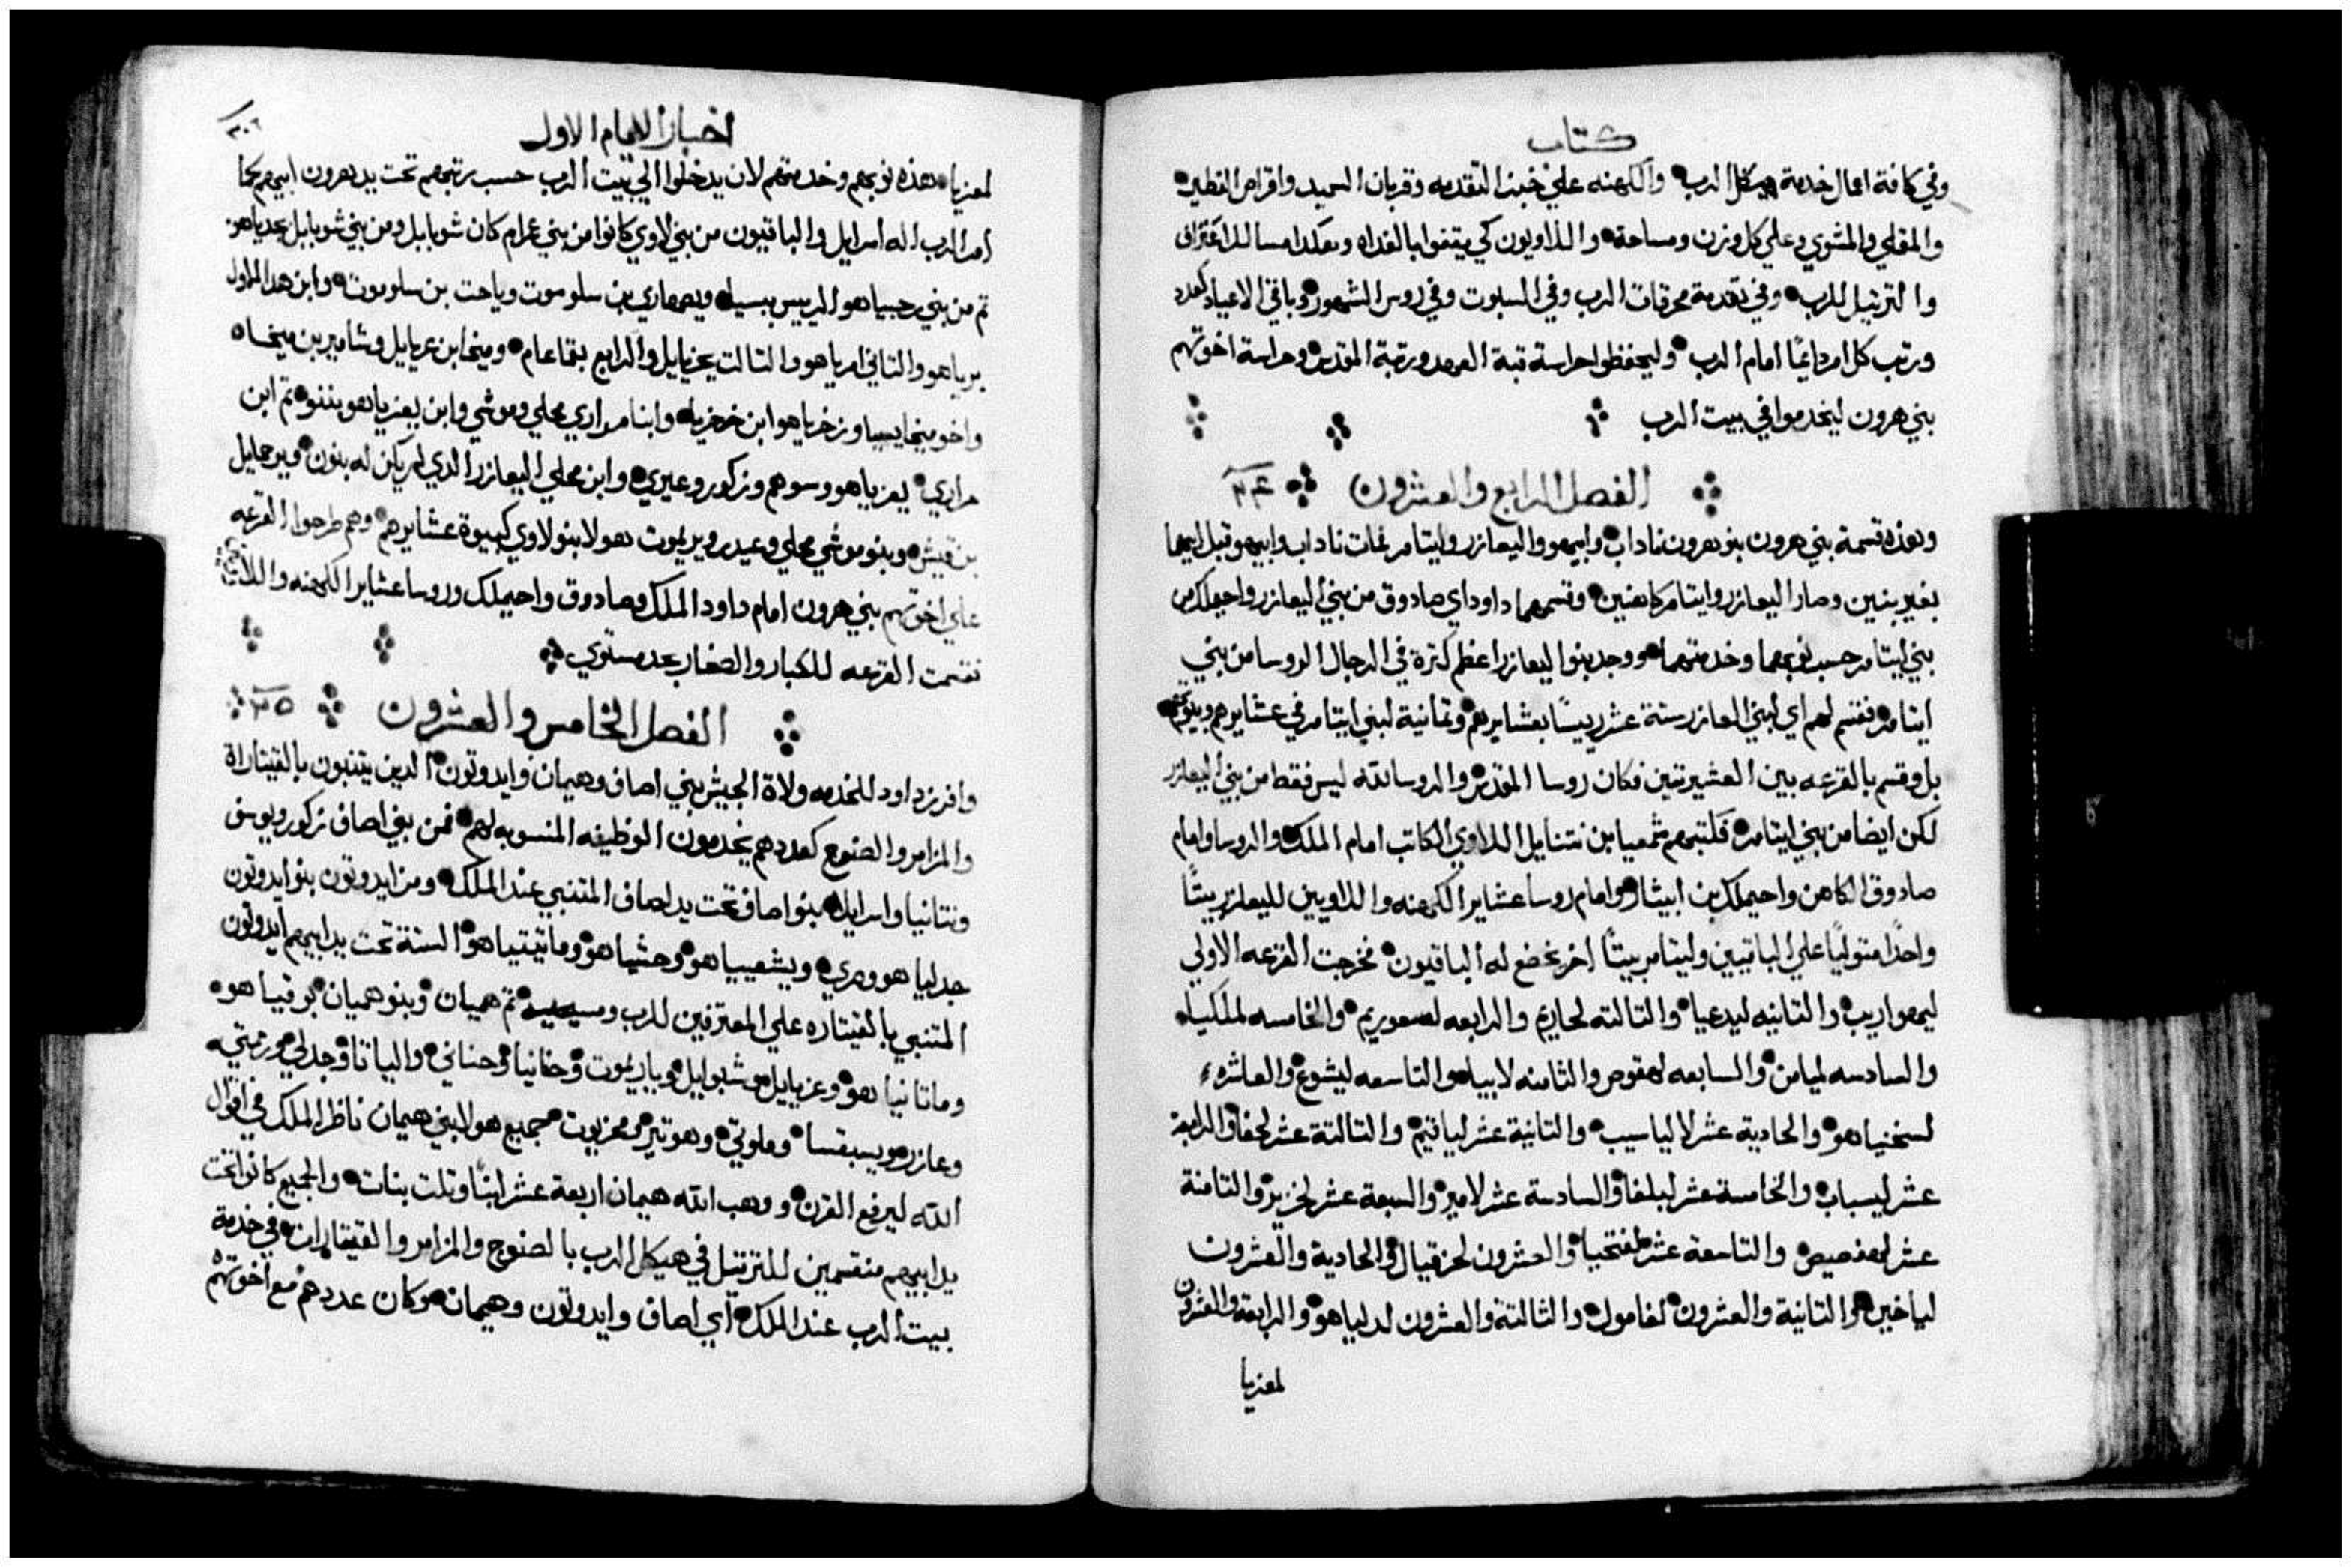 كتاب
وفي كافة اعمال خدمة هيكل الرب والكهنه علي خبز التقدمه وقربان السميد واقراص الفطير
والمقلي والمشوي وعلي كل وزن ومساحة واللاويون كي يقفوا بالغداه وهكدا مسا للاعتراف
والترتيل للرب وفي تقدمة محرقات الرب وفي السبوت وفي روس الشهور وباقي الاعياد كعدد
ورتب كل امر دايمًا امام الرب وليحفظوا حراسة قبة العهد ورتبة المقدس وحراسة اخوتهم
بني هرون ليخدموا في بيت الرب
الفصل الرابع والعشرون ٢٤
وهذه قسمة بني هرون بنو هرون ناداب وابيهو واليعازر وايتامر فمات ناداب وابيهو قبل ابيهما
بغير بنين وصار اليعازر وايتامر كاهنين وقسمهما داود اي صادوق من بني اليعازر واحيملك من
بني ايتامر حسب نوبهما وخدمتهما ووجد بنوا اليعازر اعظم كترة في الرجال الروسا من بني
ايتامر فقسم لهم اي لبني العازر ستة عشر رييسًا بعشايرهم وتمانية لبني ايتامر في عشايرهم وبيوتهم
بل وقسم بالقرعه بين العشيرتين فكان روسا المقدس والروسا لله ليس فقط من بني اليعازر
لكن ايضا من بني ايتامر فكتبهم شمعيا بن نتنايل اللاوي الكاتب امام الملك والروسا وامام
صادوق الكاهن واحيملك بن ابيثار وامام روسا عشاير الكهنه واللاويين لليعازر بيتًا
واحدًا متوليًا علي الباقيين وليتامر بيتًا اخر يخضع له الباقيون فخرجت القرعه الاولي
ليهواريب والتانيه ليدعيا والتالته لحاريم والرابعه لسعوريم والخامسه لملكيا
والسادسه لميامن والسابعه لهقوص والثامنه لابيا والتاسعه ليشوع والعاشره
لسخنياهو والحادية عشر لالياسيب والتانية عشر لياقيم والتالتة عشر لحفا والرابعة
عشر ليسباب والخامسة عشر لبلغا والسادسة عشر لامير والسبعة عشر لحزير والتامنة
عشر لهفصيص والتاسعة عشر لفتحيا والعشرون لحزقيال والحادية والعشرون
لياخين والتانية والعشرون لغامول والثالتة والعشرون لدلياهو والرابعة والعشرون
لمعزيا
اخبار الايام الاول
٣٠٦
لمعزيا هذه نوبهم وخدمتهم لان يدخلوا الي بيت الرب حسب رتبهم تحت يد هرون ابيهم كما
امر الرب اله اسرايل والباقيون من بني لاوي كانوا من بني عمرام كان شوبايل ومن بني شوبايل يحدياهو
تم من بني رحبيا هو الرييس يسيا ويصهاري بن سلوموت وياحت بن سلوموت وابن هدا الاول
يرياهو والتاني امرياهو والتالت يحزيايل والرابع يقماعام وميخا ابن عزيايل وشامير بن ميخا
واخو ميخا يسيا وزخرياهو ابن وابنا مراري محلي وموشي وابن يعزياهو بننو تم ابن
مراري يعزياهو وسوهم وزكور وعيري وابن محلي اليعازر الدي لم يكن له بنون ويرحمايل
بن قيش وبنو موشي محلي وعيدر ويريموت هولا بنو لاوي كبيوة عشايرهم وهم طرحوا القرعه
علي اخوتهم بني هرون امام داود الملك وصادوق واحيملك وروسا عشاير الكهنه واللاويين
تقسمت القرعه للكبار والصغار بعد مستوي
الفصل الخامس والعشرون ٢٥
وافرز داود للخدمه ولاة الجيش بني اصاف وهيمان وايدوتون الدين يتنبون بالقيتاراة
والمزامر والصنوج كعددهم يخدمون الوظيفه المنسوبه لهم فمن بني اصاف زكور ويوسف
ونتانيا واسرايلا بنو اصاف تحت يد اصاف المتنبي عند الملك ومن ايدوتون بنو ايدوتون
جدلياهو وصري ويشعيياهو وحشبياهو وماتيتياهو الستة تحت يد ابيهم ايدوتون
المتنبي بالقيتاره علي المعترفين للرب تم هميان وبنو هميان بوقياهو
وماتانياهو وعزيايل وشبوايل وياريموت وحنانيا وحناني والياتا وجدلي ورممتي
وعازر ويسبقسا وملوتي وهوتير محزيوت جميع هولا بني هيمان ناظر الملك في اقوال
الله ليرفع القرن ووهب الله هيمان اربعة عشر ابنًا وتلت بنات والجميع كانوا تحت
يد ابيهم منقسمين للترتيل في هيكل الرب بالصنوج والمزامر والقيتارات في خدمة
بيت الرب عند الملك اي اصاف وايدوتون وهيمان وكان عددهم مع اخوتهم